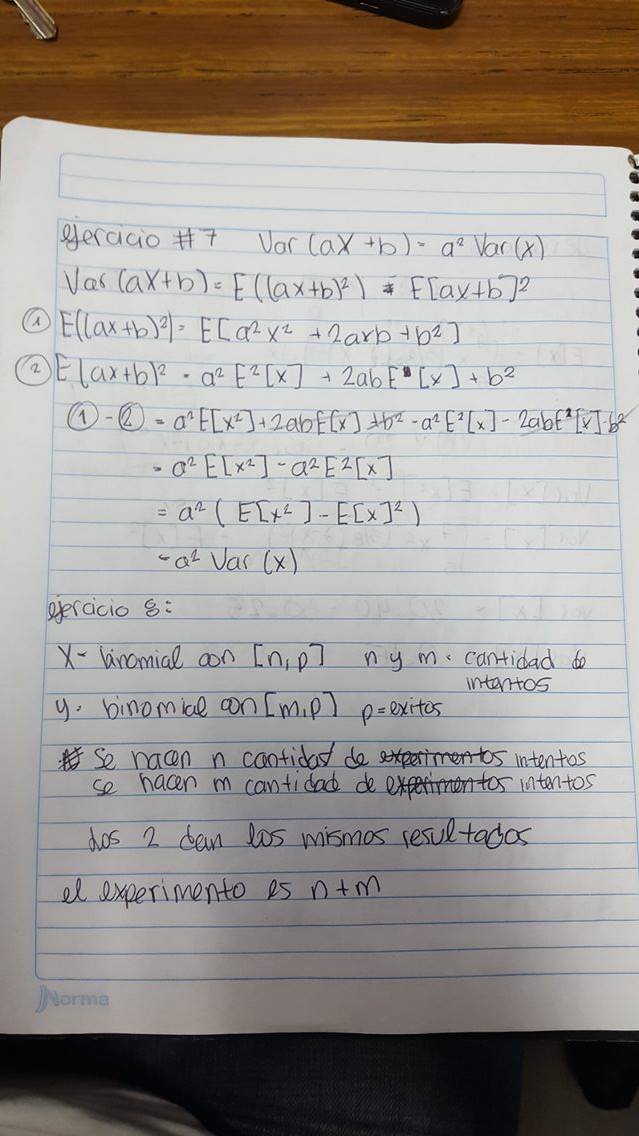 ejercicio #7 Var(aX+b) = a² Var(x)
Var(aX+b) = E((ax+b)²) - E[ax+b]²
① E((ax+b)²) = E[a²x² + 2axb + b²]
② E[ax+b)² = a² E²[x] + 2abE[x] + b²
① - ② = a²E[x²] + 2abE[x] + b² - a²E²[x] - 2abE[x] - b²
= a² E[x²] - a² E²[x]
= a² ( E[x²] - E[x]² )
= a² Var (x)
ejercicio 8:
X = binomial con [n,p] n y m = cantidad de
intentos
y = binomial con [m,p] p = exitos
Se hacen n cantidad de experimentos intentos
se hacen m cantidad de experimentos intentos
Los 2 dan los mismos resultados
el experimento es n+m
Norma